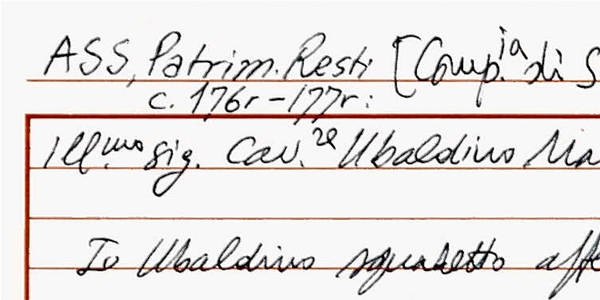 ASS, Patrim. Resti [Comp.ia di S
c. 176r-177r:
Ill.mo sig. Cav.re Ubaldino Ma
Io Ubaldino squadetto affe